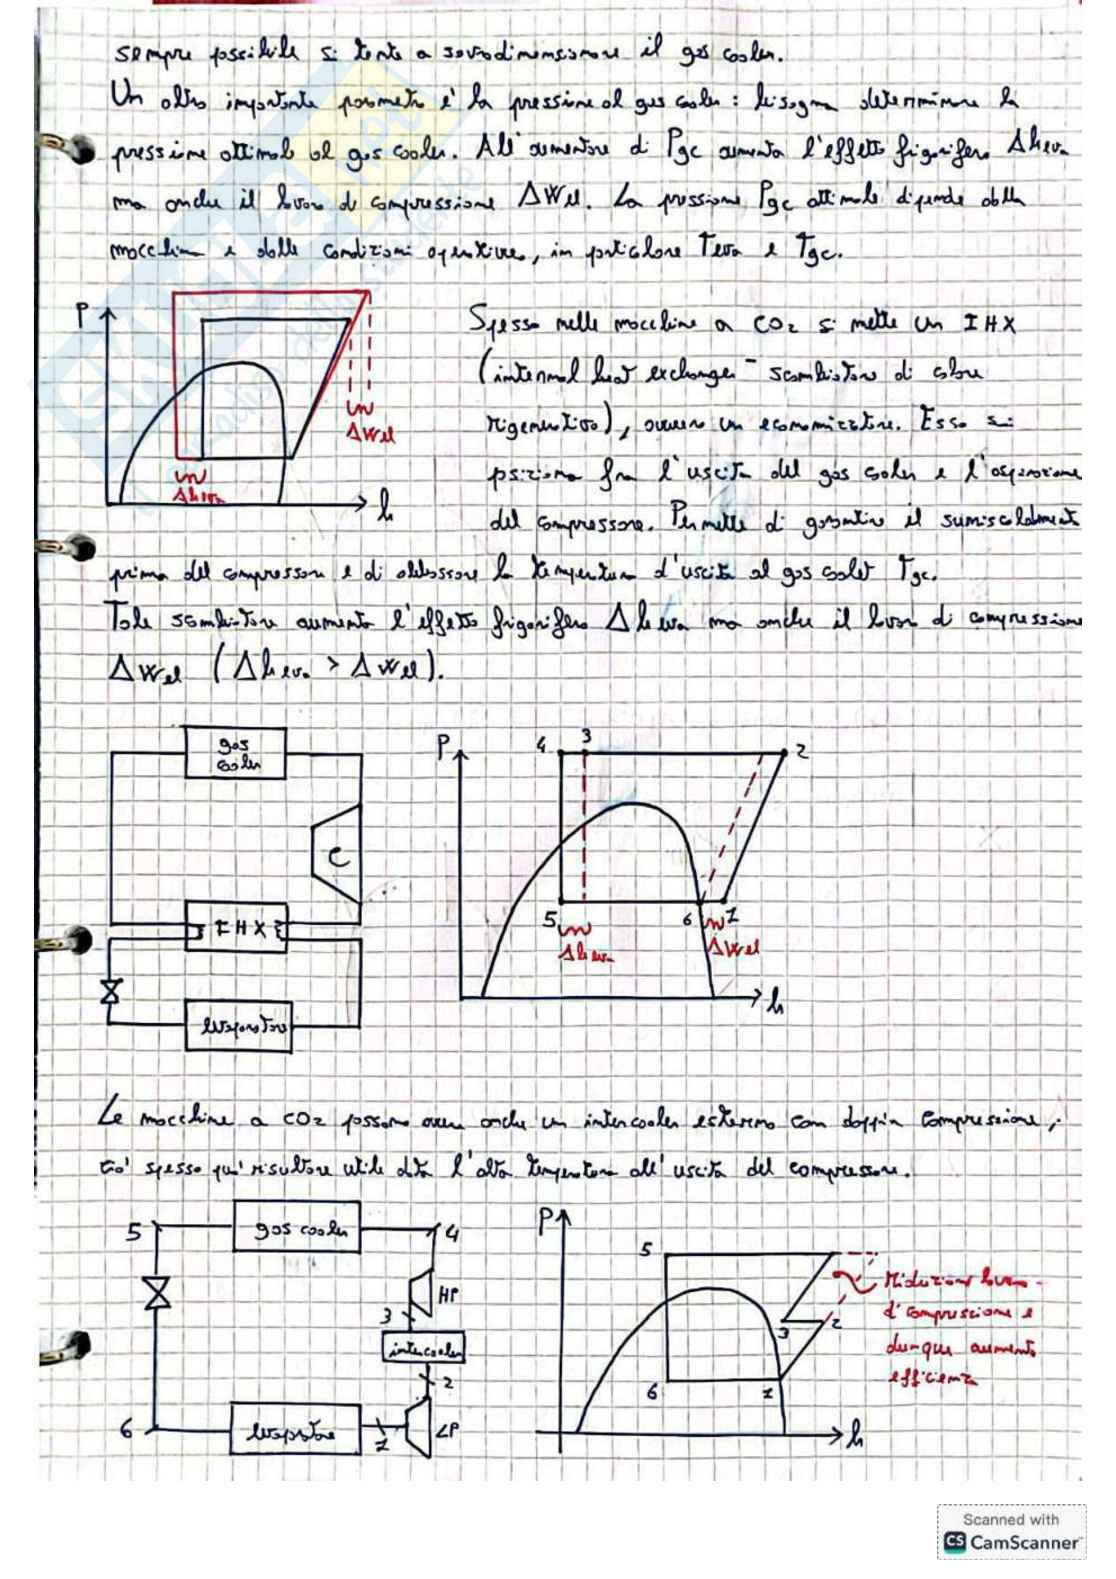 sempre possibile si tente a sovradimensionare il gas cooler.
Un altro importante parametro è la pressione al gas cooler: bisogna determinare la
pressione ottimale al gas cooler. All'aumentare di Pgc aumenta l'effetto frigorifero Δheva
ma anche il lavoro di compressione ΔWel. La pressione Pgc ottimale dipende dalla
macchina e dalle condizioni operative, in particolare Teva e Tgc.
P
ΔWel
Δheva
h
Spesso nelle macchine a CO2 si mette un IHX
(internal heat exchanger - scambiatore di calore
rigenerativo), ovvero un economizzatore. Esso si
posiziona fra l'uscita del gas cooler e l'aspirazione
del compressore. Permette di garantire il surriscaldamento
prima del compressore e di abbassare la temperatura d'uscita al gas cooler Tgc.
Tale scambiatore aumenta l'effetto frigorifero Δheva ma anche il lavoro di compressione
ΔWel (Δheva > ΔWel).
gas
cooler
C
IHX
evaporatore
P
4 3 2
5 6 1
Δheva
ΔWel
h
Le macchine a CO2 possono avere anche un intercooler esterno con doppia compressione,
ciò spesso può risultare utile data l'alta temperatura all'uscita del compressore.
5 gas cooler 4
HP
3
intercooler
2
6 evaporatore 1 LP
P
5
3 2
6 1
h
riduzione lavoro
d'compressione e
dunque aumento
efficienza
Scanned with
CS CamScanner